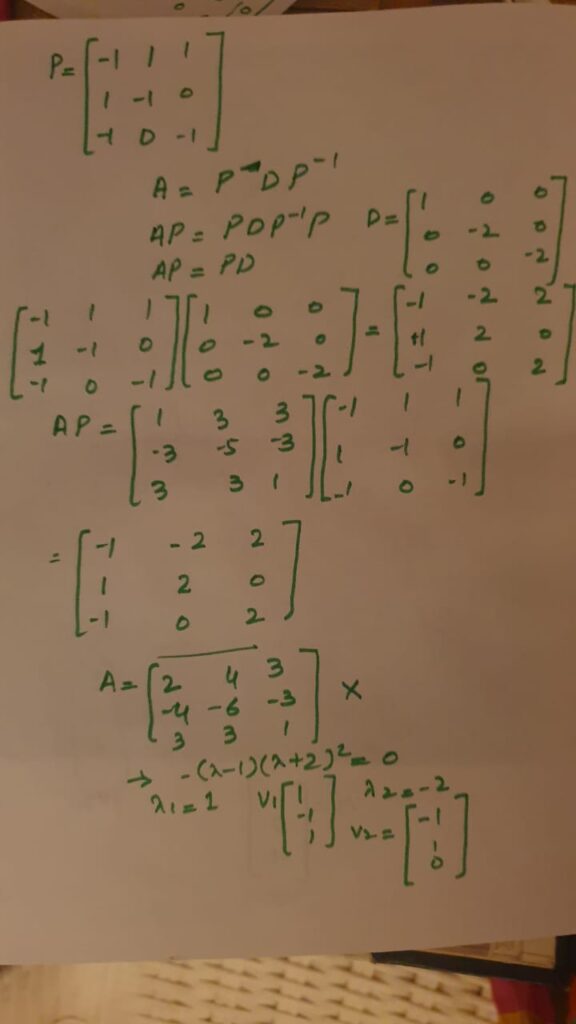 P= [-1 1 1
1 -1 0
-1 0 -1]
A = P DP⁻¹
AP = PDP⁻¹P D= [1 0 0
0 -2 0
0 0 -2]
AP = PD
[-1 1 1
1 -1 0
-1 0 -1] [1 0 0
0 -2 0
0 0 -2] = [-1 -2 2
+1 2 0
-1 0 2]
AP = [1 3 3
-3 -5 -3
3 3 1] [-1 1 1
1 -1 0
-1 0 -1]
= [-1 -2 2
1 2 0
-1 0 2]
A= [2 4 3
-4 -6 -3
3 3 1] ×
→ -(λ-1)(λ+2)² = 0
λ1 = 1 V1 [1
-1
1] λ2 = -2
V2 = [-1
1
0]